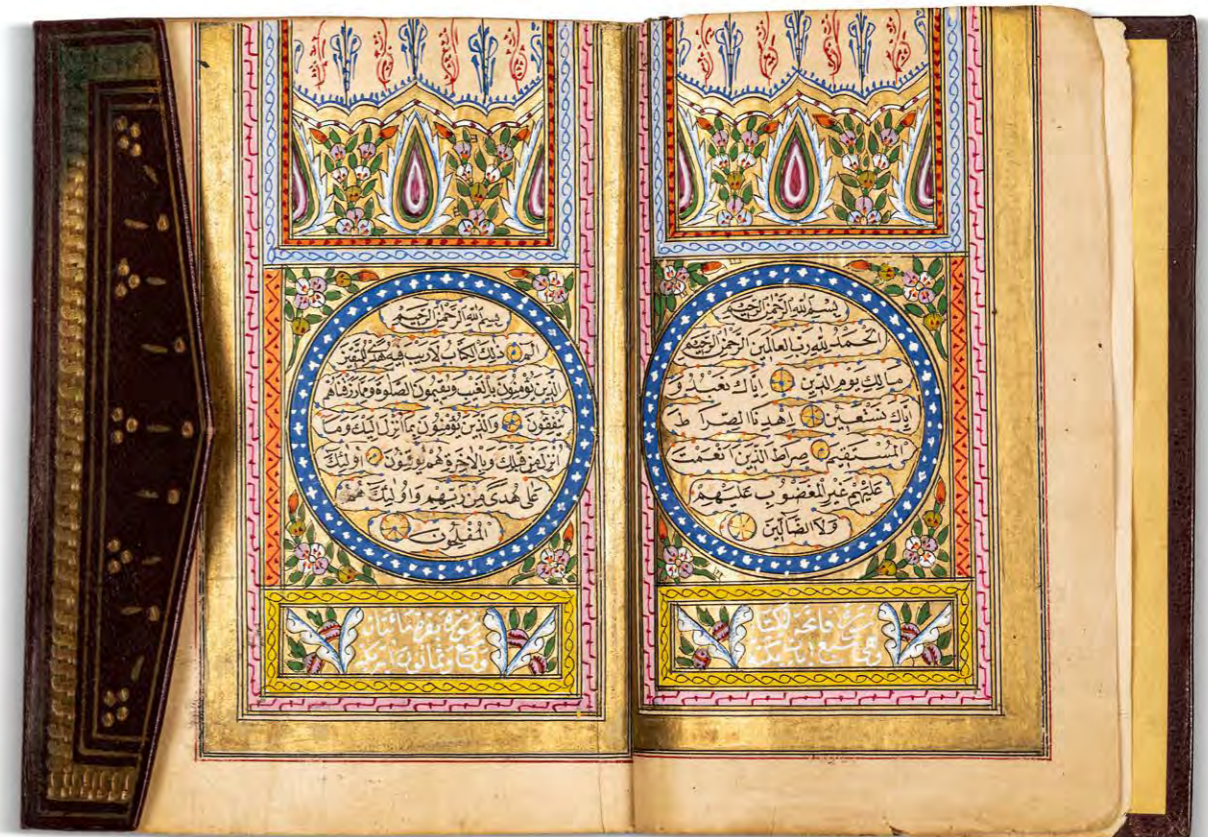 بسم الله الرحمن الرحيم
الحمد لله رب العالمين الرحمن الرحيم
مالك يوم الدين اياك نعبد و
اياك نستعين اهدنا الصراط
المستقيم صراط الذين انعمت
عليهم غير المغضوب عليهم
ولا الضالين
سورة فاتحة لكتا
وهي سبع ايات مكية
بسم الله الرحمن الرحيم
الم ذلك الكتاب لا ريب فيه هدى للمتقين
الذين يؤمنون بالغيب ويقيمون الصلوة ومما رزقناهم
ينفقون والذين يؤمنون بما انزل اليك وما
انزل من قبلك وبالاخرة هم يوقنون اولئك
على هدى من ربهم واولئك هم
المفلحون
سورة
وثمانون